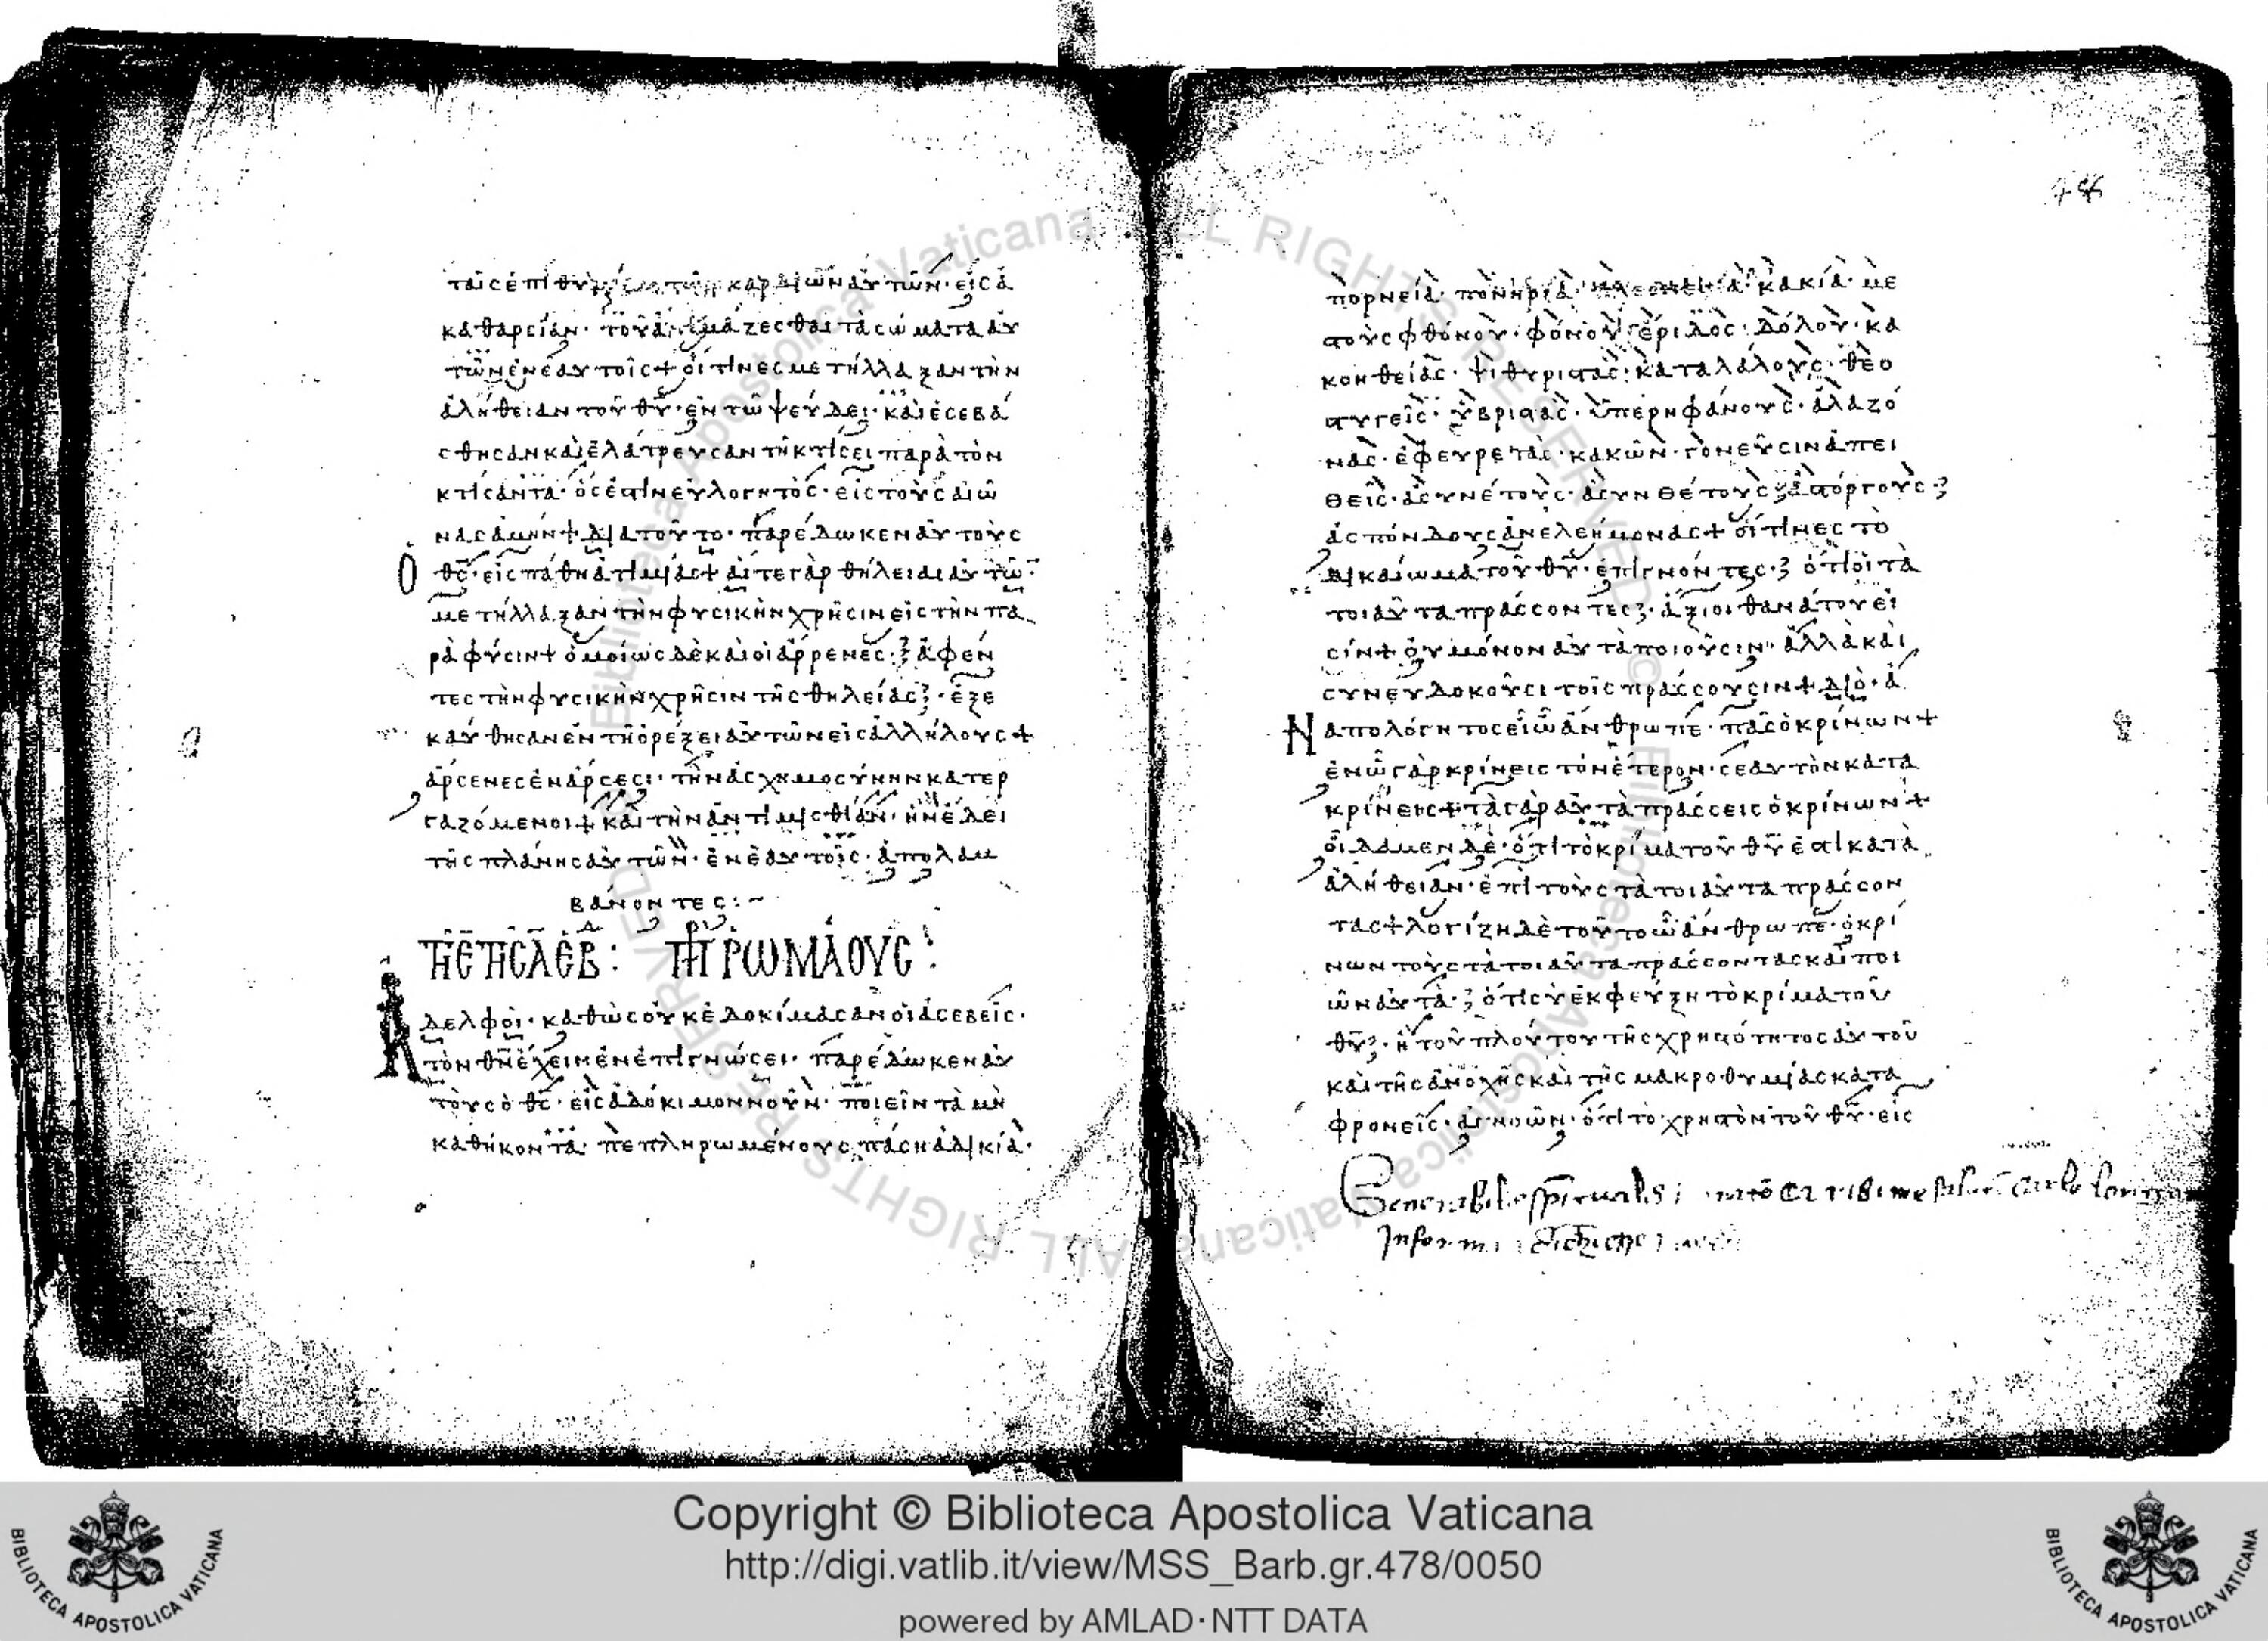 ταῖς ἐπιθυμίαις τῶν καρδιῶν αὐτῶν· εἰς ἀ
καθαρσίαν· τοῦ ἀτιμάζεσθαι τὰ σώματα αὐ
τῶν ἐν ἑαυτοῖς + οἵτινες μετήλλαξαν τὴν
ἀλήθειαν τοῦ θυ· ἐν τῶ ψεύδει· καὶ ἐσεβά
σθησαν καὶ ἐλάτρευσαν τῆ κτίσει παρὰ τὸν
κτίσαντα· ὅς ἐστιν εὐλογητὸς· εἰς τοὺς αἰῶ
νας ἀμήν + διατοῦτο· παρέδωκεν αὐτοὺς
Ο θς· εἰς πάθη ἀτιμίας + αἵ τε γὰρ θήλειαι αὐτῶν
μετήλλαξαν τὴν φυσικὴν χρῆσιν εἰς τὴν πα
ρὰ φύσιν + ὁμοίως δὲ καὶ οἱ ἄρρενες· ἀφέν
τες τὴν φυσικὴν χρῆσιν τῆς θηλείας· ἐξε
καύθησαν ἐν τῆ ὀρέξει αὐτῶν εἰς ἀλλήλους +
ἄρσενες ἐν ἄρσεσι· τὴν ἀσχημοσύνην κατερ
γαζόμενοι + καὶ τὴν ἀντιμισθίαν· ἣν ἔδει
τῆς πλάνης αὐτῶν· ἐν ἑαυτοῖς· ἀπολαμ
βάνοντες:~
ΤΗ Ε ΤΗΣ Δ ΕΒΔ: ΠΡ ΡΩΜΑΟΥΣ:
Ἀδελφοὶ· καθὼς οὐκ ἐδοκίμασαν οἱ ἀσεβεῖς·
τὸν θν ἔχειν ἐν ἐπιγνώσει· παρέδωκεν αὐ
τοὺς ὁ θς· εἰς ἀδόκιμον νοῦν· ποιεῖν τὰ μὴ
καθήκοντα· πεπληρωμένους πάση ἀδικία·
πορνεία· πονηρία· πλεονεξία· κακία· με
στοὺς φθόνου· φόνου ἔριδος· δόλου· κα
κοηθείας· ψιθυριστὰς· καταλάλους· θεο
στυγεῖς· ὑβριστὰς· ὑπερηφάνους· ἀλαζό
νας· ἐφευρετὰς κακῶν· γονεῦσιν ἀπει
θεῖς· ἀσυνέτους· ἀσυνθέτους· ἀστόργους·
ἀσπόνδους ἀνελεήμονας + οἵτινες τὸ
δικαίωμα τοῦ θυ· ἐπιγνόντες· ὅτι οἱ τὰ
τοιαῦτα πράσσοντες· ἄξιοι θανάτου εἰ
σίν + οὐ μόνον αὐτὰ ποιοῦσιν· ἀλλὰ καὶ
συνευδοκοῦσι τοῖς πράσσουσιν + διὸ· ἀ
Ναπολόγητος εἶ ὦ ἄνθρωπε· πᾶς ὁ κρίνων +
ἐν ὧ γὰρ κρίνεις τὸν ἕτερον· σεαυτὸν κατα
κρίνεις + τὰ γὰρ αὐτὰ πράσσεις ὁ κρίνων +
οἴδαμεν δὲ· ὅτι τὸ κρίμα τοῦ θυ ἐστὶ κατὰ
ἀλήθειαν· ἐπὶ τοὺς τὰ τοιαῦτα πράσσον
τας + λογίζη δὲ τοῦτο ὦ ἄνθρωπε· ὁ κρί
νων τοὺς τὰ τοιαῦτα πράσσοντας καὶ ποι
ῶν αὐτὰ· ὅτι σὺ ἐκφεύξη τὸ κρίμα τοῦ
θυ· ἢ τοῦ πλούτου τῆς χρηστότητος αὐτοῦ
καὶ τῆς ἀνοχῆς καὶ τῆς μακροθυμίας κατα
φρονεῖς· ἀγνοῶν· ὅτι τὸ χρηστὸν τοῦ θυ· εἰς
Copyright © Biblioteca Apostolica Vaticana
http://digi.vatlib.it/view/MSS_Barb.gr.478/0050
powered by AMLAD·NTT DATA
BIBLIOTECA APOSTOLICA VATICANA
BIBLIOTECA APOSTOLICA VATICANA